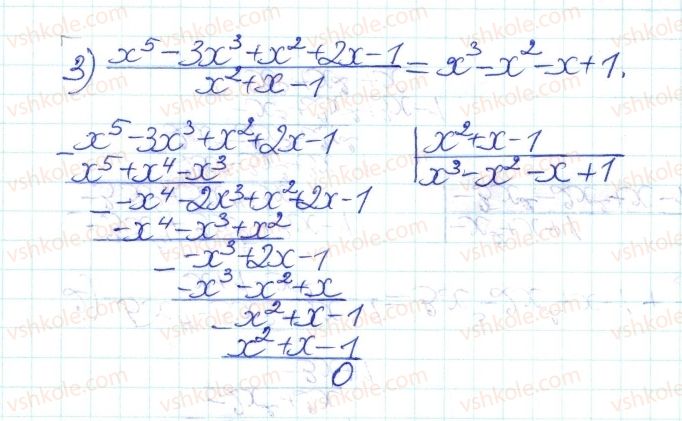 3) (x⁵ - 3x³ + x² + 2x - 1)/(x² + x - 1) = x³ - x² - x + 1.
- x⁵ - 3x³ + x² + 2x - 1 | x² + x - 1
x⁵ + x⁴ - x³ | x³ - x² - x + 1
- -x⁴ - 2x³ + x² + 2x - 1
-x⁴ - x³ + x²
- -x³ + 2x - 1
-x³ - x² + x
- x² + x - 1
x² + x - 1
0